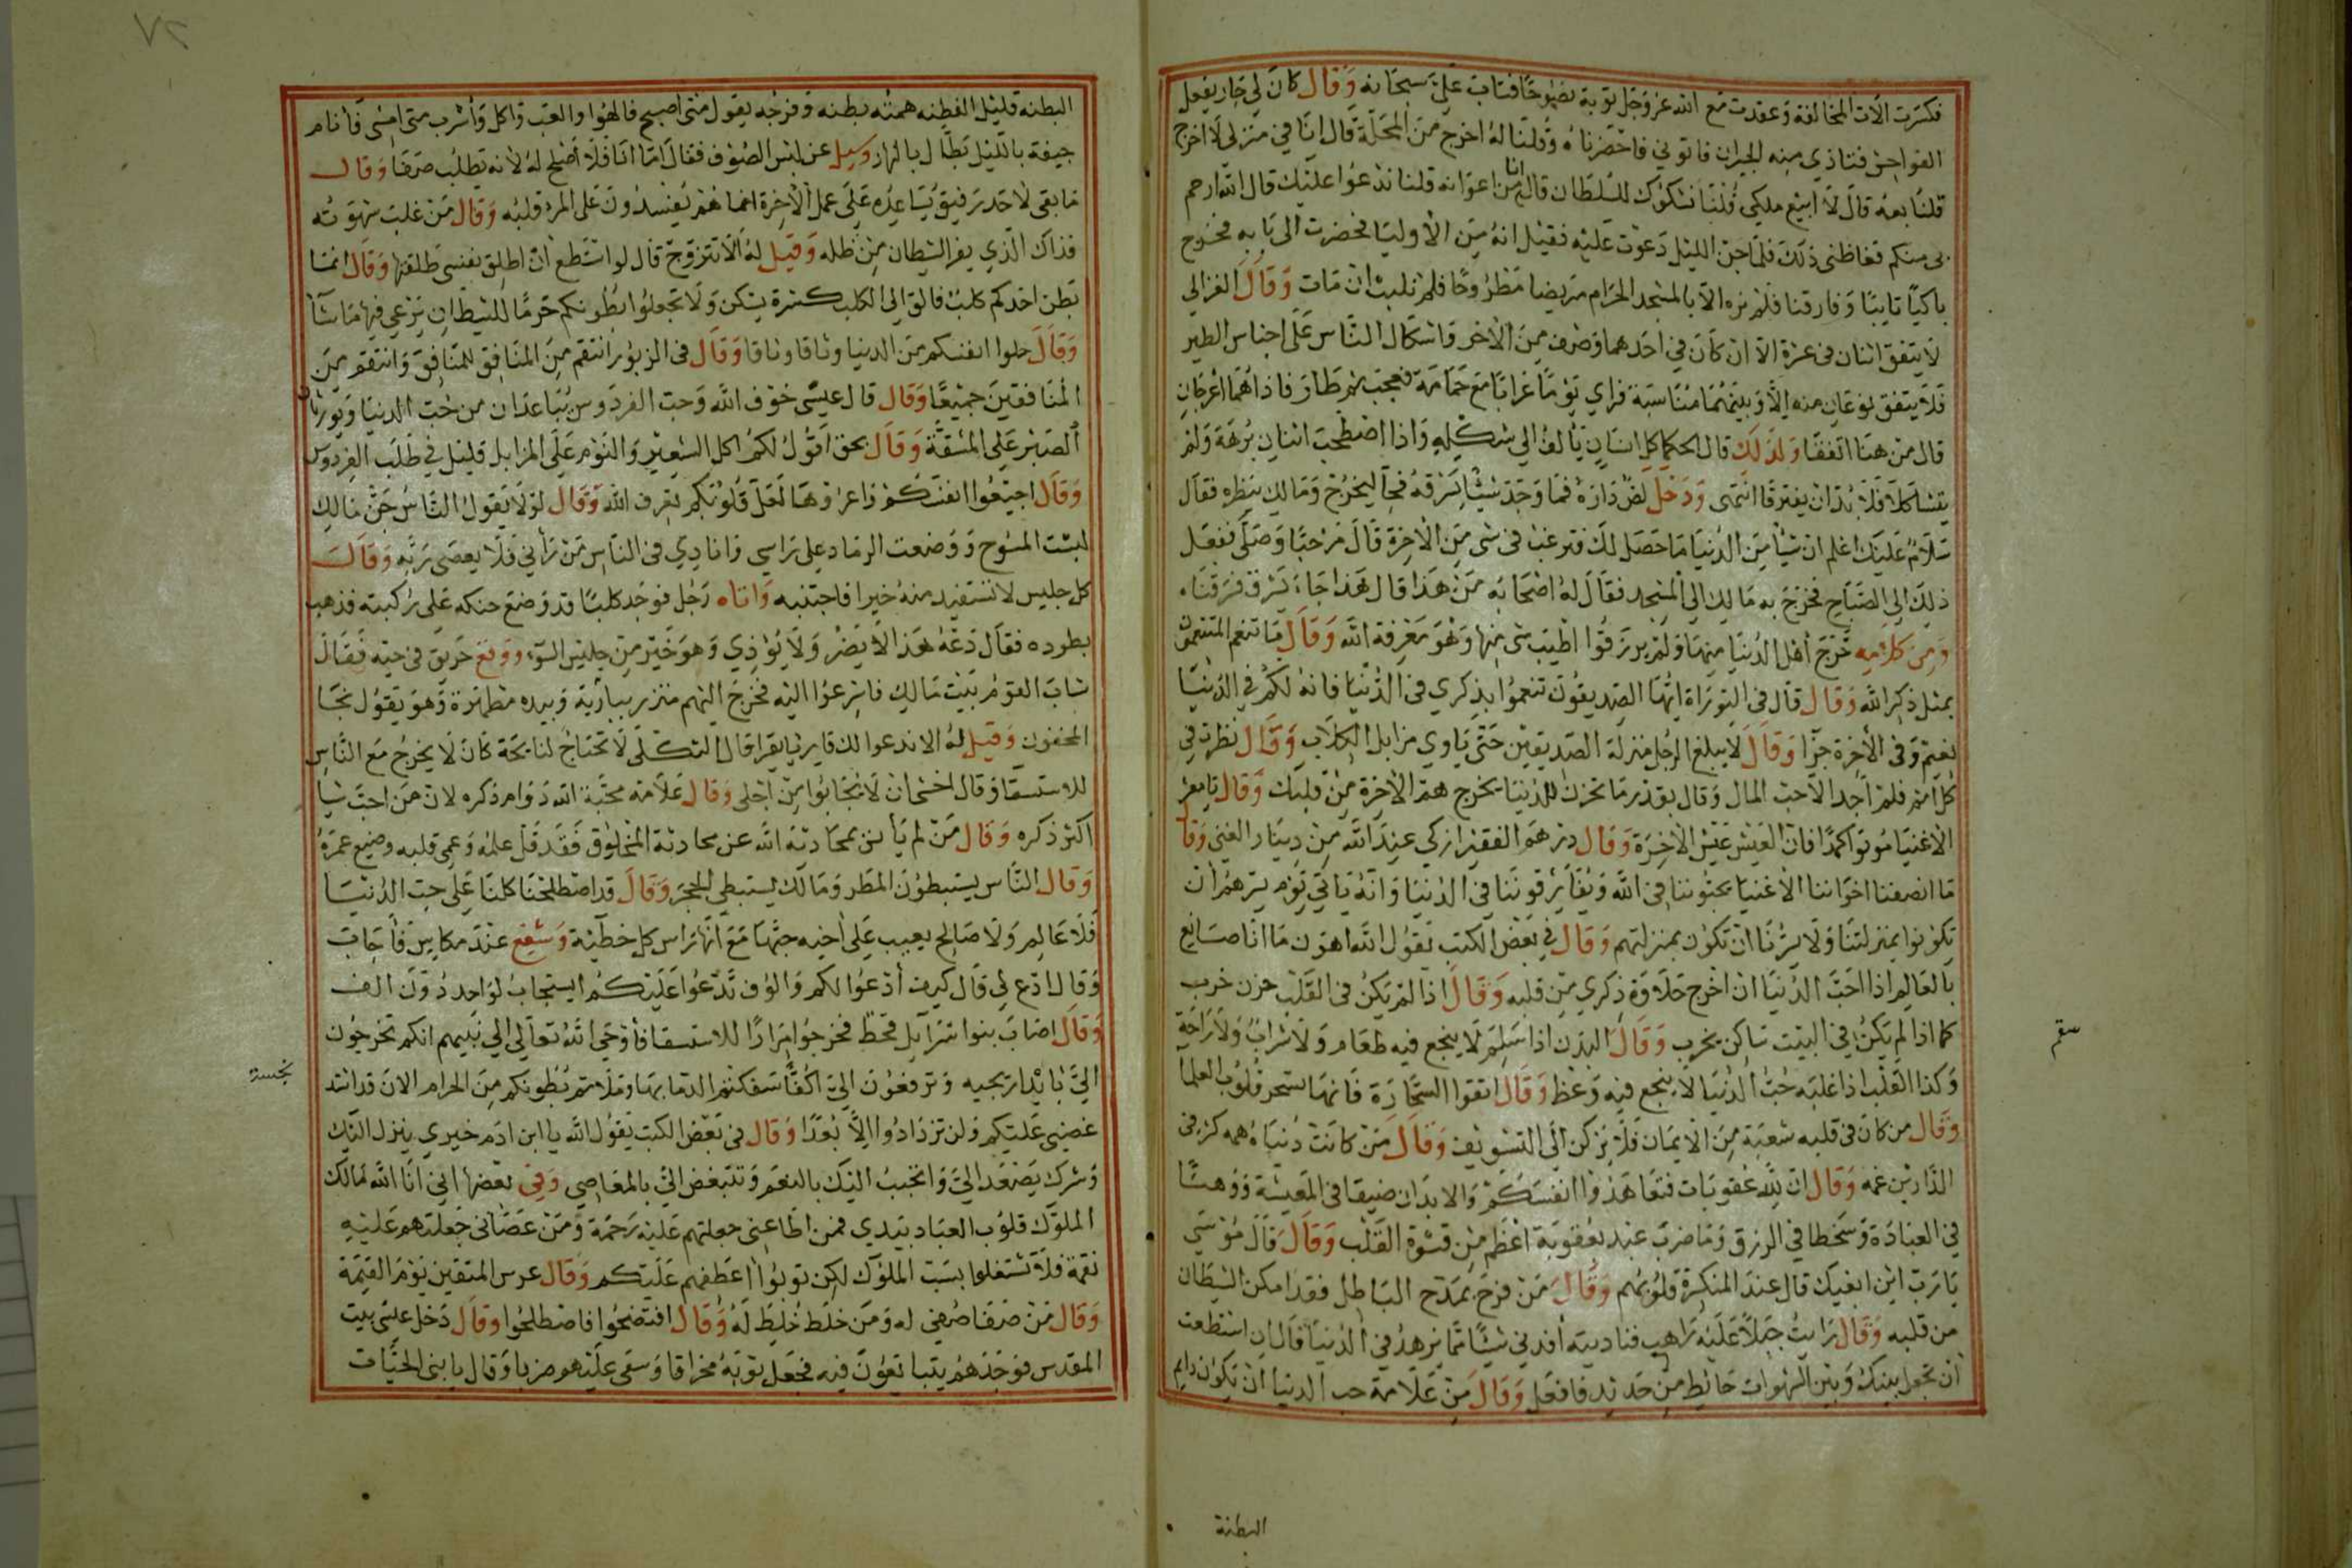 فكسرت الات المخالفة وعقدت مع الله عز وجل توبة نصوحا فتاب علي سبحانه وقال كان لي جار يفعل
الفواحش فتاذي منه الجيران فاتوني فاحضرناه وقلنا له اخرج من المحلة قال انا في منزلي لا اخرج
قلنا بعه قال لا ابيع ملكي قلنا نشكوك للسلطان قال انا من اعوانه قلنا ندعوا عليك قال الله ارحم
بي منكم فغاظني ذلك فلما جن الليل دعوت عليه فقيل انه من الاوليا فحضرت الى بابه فخرج
باكيا تايبا وفارقنا فلم نره الا بالمسجد الحرام مريضا مطروحا فلم نلبث ان مات وقال الغزالي
لا يتفق اثنان في عشرة الا ان كان في احدهما وصف من الاخر واشكال الناس على اجناس الطير
فلا يتفق نوعان منه الا وبينهما مناسبة فراي يوما غرابا مع حمامة فعجب ثم طاروا فاذا هما اعرجان
قال من هنا اتفقا ولذلك قال الحكما كل انسان يالف الي شكله واذا اصطحب اثنان برهة ولم
يتشاكلا فلا بد ان يفترقا انتهى ودخل لص داره فما وجد شيئا يسرقه فجا ليخرج ومالك ينظره فقال
سلام عليك اعلم ان شيا من الدنيا ما حصل لك فترغب في شي من الاخرة قال مرحبا وصلى ففعل
ذلك الي الصباح فخرج به مالك الي المسجد فقال له اصحابه من هذا قال هذا جاء يسرق فسرقناه
ومن كلامه خرج اهل الدنيا منها ولم يرزقوا اطيب شي منها وهو معرفة الله وقال ما تنعم المتنعمون
بمثل ذكر الله وقال قال في التوراة ايها الصديقون تنعموا بذكري في الدنيا فانه لكم في الدنيا
نعيم وفي الاخرة جزا وقال لا يبلغ الرجل منزلة الصديقين حتى ياوي مزابل الكلاب وقال نظرت في
كل اثم فلم اجد الا حب المال وقال بقدر ما تحزن للدنيا يخرج هم الاخرة من قلبك وقال يا معشر
الاغنيا موتوا كمدا فان العيش عيش الاخرة وقال درهم الفقير ازكي عند الله من دينار الغني وقال
ما انصفنا اخواننا الاغنيا يحبوننا في الله ويفارقوننا في الدنيا وانه ياتي يوم يسرهم ان
يكونوا بمنزلتنا ولا يسرنا ان نكون بمنزلتهم وقال في بعض الكتب يقول الله اهون ما انا صانع
بالعالم اذا احب الدنيا ان اخرج حلاوة ذكري من قلبه وقال اذا لم يكن في القلب حزن خرب
كما اذا لم يكن في البيت ساكن يخرب وقال البدن اذا سقم لا ينجع فيه طعام ولا شراب ولا راحة
وكذا القلب اذا غلبه حب الدنيا لا ينجع فيه وعظ وقال اتقوا السحارة فانها تسحر قلوب العلما
وقال من كان في قلبه شعبة من الايمان فلا يركن الى التسويف وقال من كانت دنياه همه كثر في
الدارين غمه وقال ان لله عقوبات فتعاهدوا انفسكم والابدان ضيقا في المعيشة ووهنا
في العبادة وسخطا في الرزق وما ضرب عبد بعقوبة اعظم من قسوة القلب وقال قال موسي
يا رب اين ابغيك قال عند المنكسرة قلوبهم وقال من فرح بمدح الباطل فقد امكن الشيطان
من قلبه وقال رايت جبلا عليه راهب فناديته افدني شيئا مما يزهد في الدنيا قال ان استطعت
ان تجعل بينك وبين الشهوات حائط من حديد فافعل وقال من علامة حب الدنيا ان يكون دايم
سقم
البطنة
٧٢
البطنه قليل الفطنه همته بطنه وفرجه يقول متى اصبح فالهوا والعب واكل واشرب متى امسى فانام
جيفة بالليل بطال بالنهار وسيل عن لبس الصوف فقال اما انا فلا اصلح له لانه يطلب صفا وقال
ما بقي لاحد رفيق يساعده على عمل الاخرة انما هم يفسدون على المرء قلبه وقال من غلب شهوته
فذاك الذي يفر الشيطان من ظله وقيل له الا تتزوج قال لو استطع ان اطلق نفسي طلقتها وقال انما
بطن احدكم كلب فالق الي الكلب كسرة يسكن ولا تجعلوا بطونكم حرما للشيطان يرعي فيها ما شا
وقال حلوا انفسكم من الدنيا وثاقا وثاقا وقال في الزبور انتقم من المنافق للمنافق وانتقم من
المنافقين جميعا وقال قال عيسى خوف الله وحب الفردوس يباعدان من حب الدنيا ويورثان
الصبر على المشقة وقال بحق اقول لكم اكل الشعير والنوم على المزابل قليل في طلب الفردوس
وقال اجيعوا انفسكم واعروها لعل قلوبكم تعرف الله وقال لولا يقول الناس جن مالك
لبست المسوح ووضعت الرماد على راسي وانادي في الناس من رآني فلا يعصى ربه وقال
كل جليس لا تستفيد منه خيرا فاجتنبه واتاه رجل فوجد كلبا قد وضع حنكه على ركبته فذهب
يطرده فقال دعه هذا لا يضر ولا يوذي وهو خير من جليس السوء ووقع حريق في حيه فقال
شاب القوم بيت مالك فاسرعوا اليه فخرج اليهم متزر ببارية وبيده مطهرة وهو يقول نجا
المخفون وقيل له الا ندعوا لك قاريا يقرا قال الثكلى لا تحتاج لنايحة كان لا يخرج مع الناس
للاستسقا وقال اخشى ان لا تجابوا من اجلي وقال علامة محبة الله دوام ذكره لان من احب شيا
اكثر ذكره وقال من لم يأنس بمحادثة الله عن محادثة المخلوق فقد قل علمه وعمي قلبه وضيع عمره
وقال الناس يستبطون المطر ومالك يستبطي الحجر وقال قد اصطلحنا كلنا على حب الدنيا
فلا عالم ولا صالح يعيب على اخيه حبها مع انها راس كل خطية وشفع عند مكاس فاجاب
وقال ادع لي قال كيف أدعوا لكم والوف تدعوا عليكم ايستجاب لواحد دون الف
وقال اصاب بنوا اسرايل قحط فخرجوا مرارا للاستسقا فأوحى الله تعالى الي نبيهم انكم تخرجون
الي بابدان نجسه وترفعون الي اكفا سفكتم الدما بها وملاتم بطونكم من الحرام الان قد اشتد
غضبي عليكم ولن تزدادوا الا بعدا وقال في بعض الكتب يقول الله يا ابن ادم خيري ينزل اليك
وشرك يصعد الي واتحبب اليك بالنعم وتتبغض الي بالمعاصي وفي بعضها اني انا الله مالك
الملوك قلوب العباد بيدي فمن اطاعني جعلتهم عليه رحمة ومن عصاني جعلتهم عليه
نقمة فلا تشتغلوا بسب الملوك لكن توبوا اعطفهم عليكم وقال عرس المتقين يوم القيمة
وقال من صفا صفي له ومن خلط خلط له وقال افتضحوا فاصطلحوا وقال دخل عيسى بيت
المقدس فوجدهم يتبايعون فيه فجعل ثوبه مخراقا وسعى عليهم ضربا وقال يا بني الحيات
نجسة